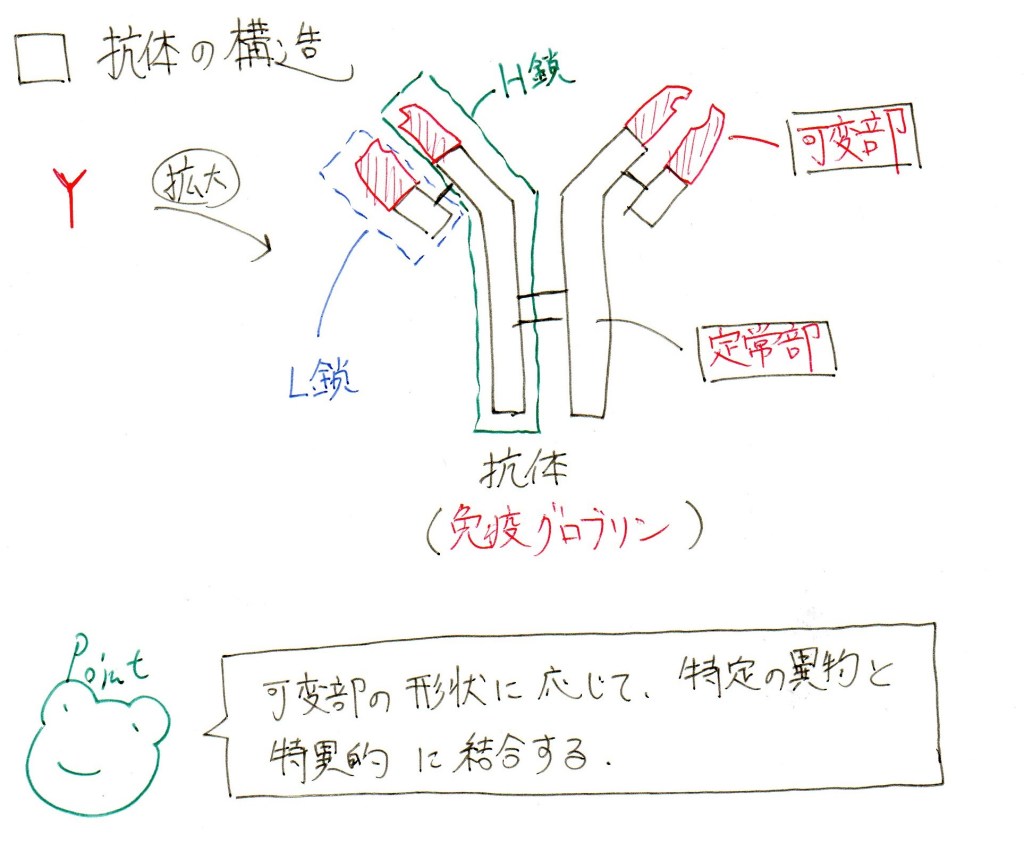 抗体の構造
H鎖
可変部
拡大
定常部
L鎖
抗体
(免疫グロブリン)
Point
可変部の形状に応じて、特定の異物と
特異的に結合する.